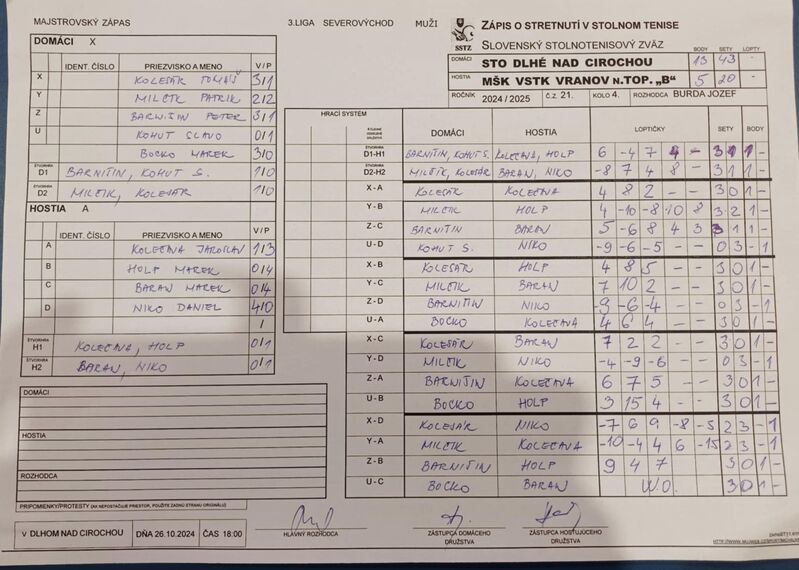 MAJSTROVSKÝ ZÁPAS 3.LIGA SEVEROVÝCHOD MUŽI
ZÁPIS O STRETNUTÍ V STOLNOM TENISE
SSTZ SLOVENSKÝ STOLNOTENISOVÝ ZVÄZ BODY SETY LOPTY
DOMÁCI STO DLHÉ NAD CIROCHOU 13 43 -
HOSTIA MŠK VSTK VRANOV N.TOP. „B" 5 20 -
ROČNÍK 2024 / 2025 č.z 21. KOLO 4. ROZHODCA BURDA JOZEF
DOMÁCI X
IDENT. ČÍSLO PRIEZVISKO A MENO V/P
X KOLESÁR TOMÁŠ 3/1
Y MILČÍK PATRIK 2/2
Z BARNIŠIN PETER 3/1
U KOHUT SLAVO 0/1
BOCKO MAREK 3/0
ŠTVORHRA D1 BARNIŠIN, KOHUT S. 1/0
ŠTVORHRA D2 MILČÍK, KOLESÁR 1/0
HOSTIA A
IDENT. ČÍSLO PRIEZVISKO A MENO V/P
A KOLEČAVA JAROSLAV 1/3
B HOLP MAREK 0/4
C BARAN MAREK 0/4
D NIKO DANIEL 4/0
/
ŠTVORHRA H1 KOLEČAVA, HOLP 0/1
ŠTVORHRA H2 BARAN, NIKO 0/1
DOMÁCI
HOSTIA
ROZHODCA
PRIPOMIENKY/PROTESTY (AK NEPOSTAČUJE PRIESTOR, POUŽITE ZADNÚ STRANU ORIGINÁLU)
HRACÍ SYSTÉM
DOMÁCI HOSTIA LOPTIČKY SETY BODY
ŠTVORHRA D1-H1 BARNIŠIN, KOHUT S. KOLEČAVA, HOLP 6 -4 7 4 - 3 1 1 -
ŠTVORHRA D2-H2 MILČÍK, KOLESÁR BARAN, NIKO -8 7 4 8 - 3 1 1 -
X - A KOLESÁR KOLEČAVA 4 8 2 - - 3 0 1 -
Y - B MILČÍK HOLP 4 -10 -8 10 8 3 2 1 -
Z - C BARNIŠIN BARAN 5 -6 8 4 3 3 1 1 -
U - D KOHUT S. NIKO -9 -6 -5 - - 0 3 - 1
X - B KOLESÁR HOLP 4 8 5 - - 3 0 1 -
Y - C MILČÍK BARAN 7 10 2 - - 3 0 1 -
Z - D BARNIŠIN NIKO -9 -6 -4 - - 0 3 - 1
U - A BOCKO KOLEČAVA 4 6 4 - - 3 0 1 -
X - C KOLESÁR BARAN 7 2 2 - - 3 0 1 -
Y - D MILČÍK NIKO -4 -9 -6 - - 0 3 - 1
Z - A BARNIŠIN KOLEČAVA 6 7 5 - - 3 0 1 -
U - B BOCKO HOLP 3 15 4 - - 3 0 1 -
X - D KOLESÁR NIKO -7 6 9 -8 -5 2 3 - 1
Y - A MILČÍK KOLEČAVA -10 -4 4 6 -15 2 3 - 1
Z - B BARNIŠIN HOLP 9 4 7 3 0 1 -
U - C BOCKO BARAN WO. 3 0 1 -
V DLHOM NAD CIROCHOU DŇA 26.10.2024 ČAS 18:00
HLAVNÝ ROZHODCA
ZÁSTUPCA DOMÁCEHO DRUŽSTVA
ZÁSTUPCA HOSŤUJÚCEHO DRUŽSTVA